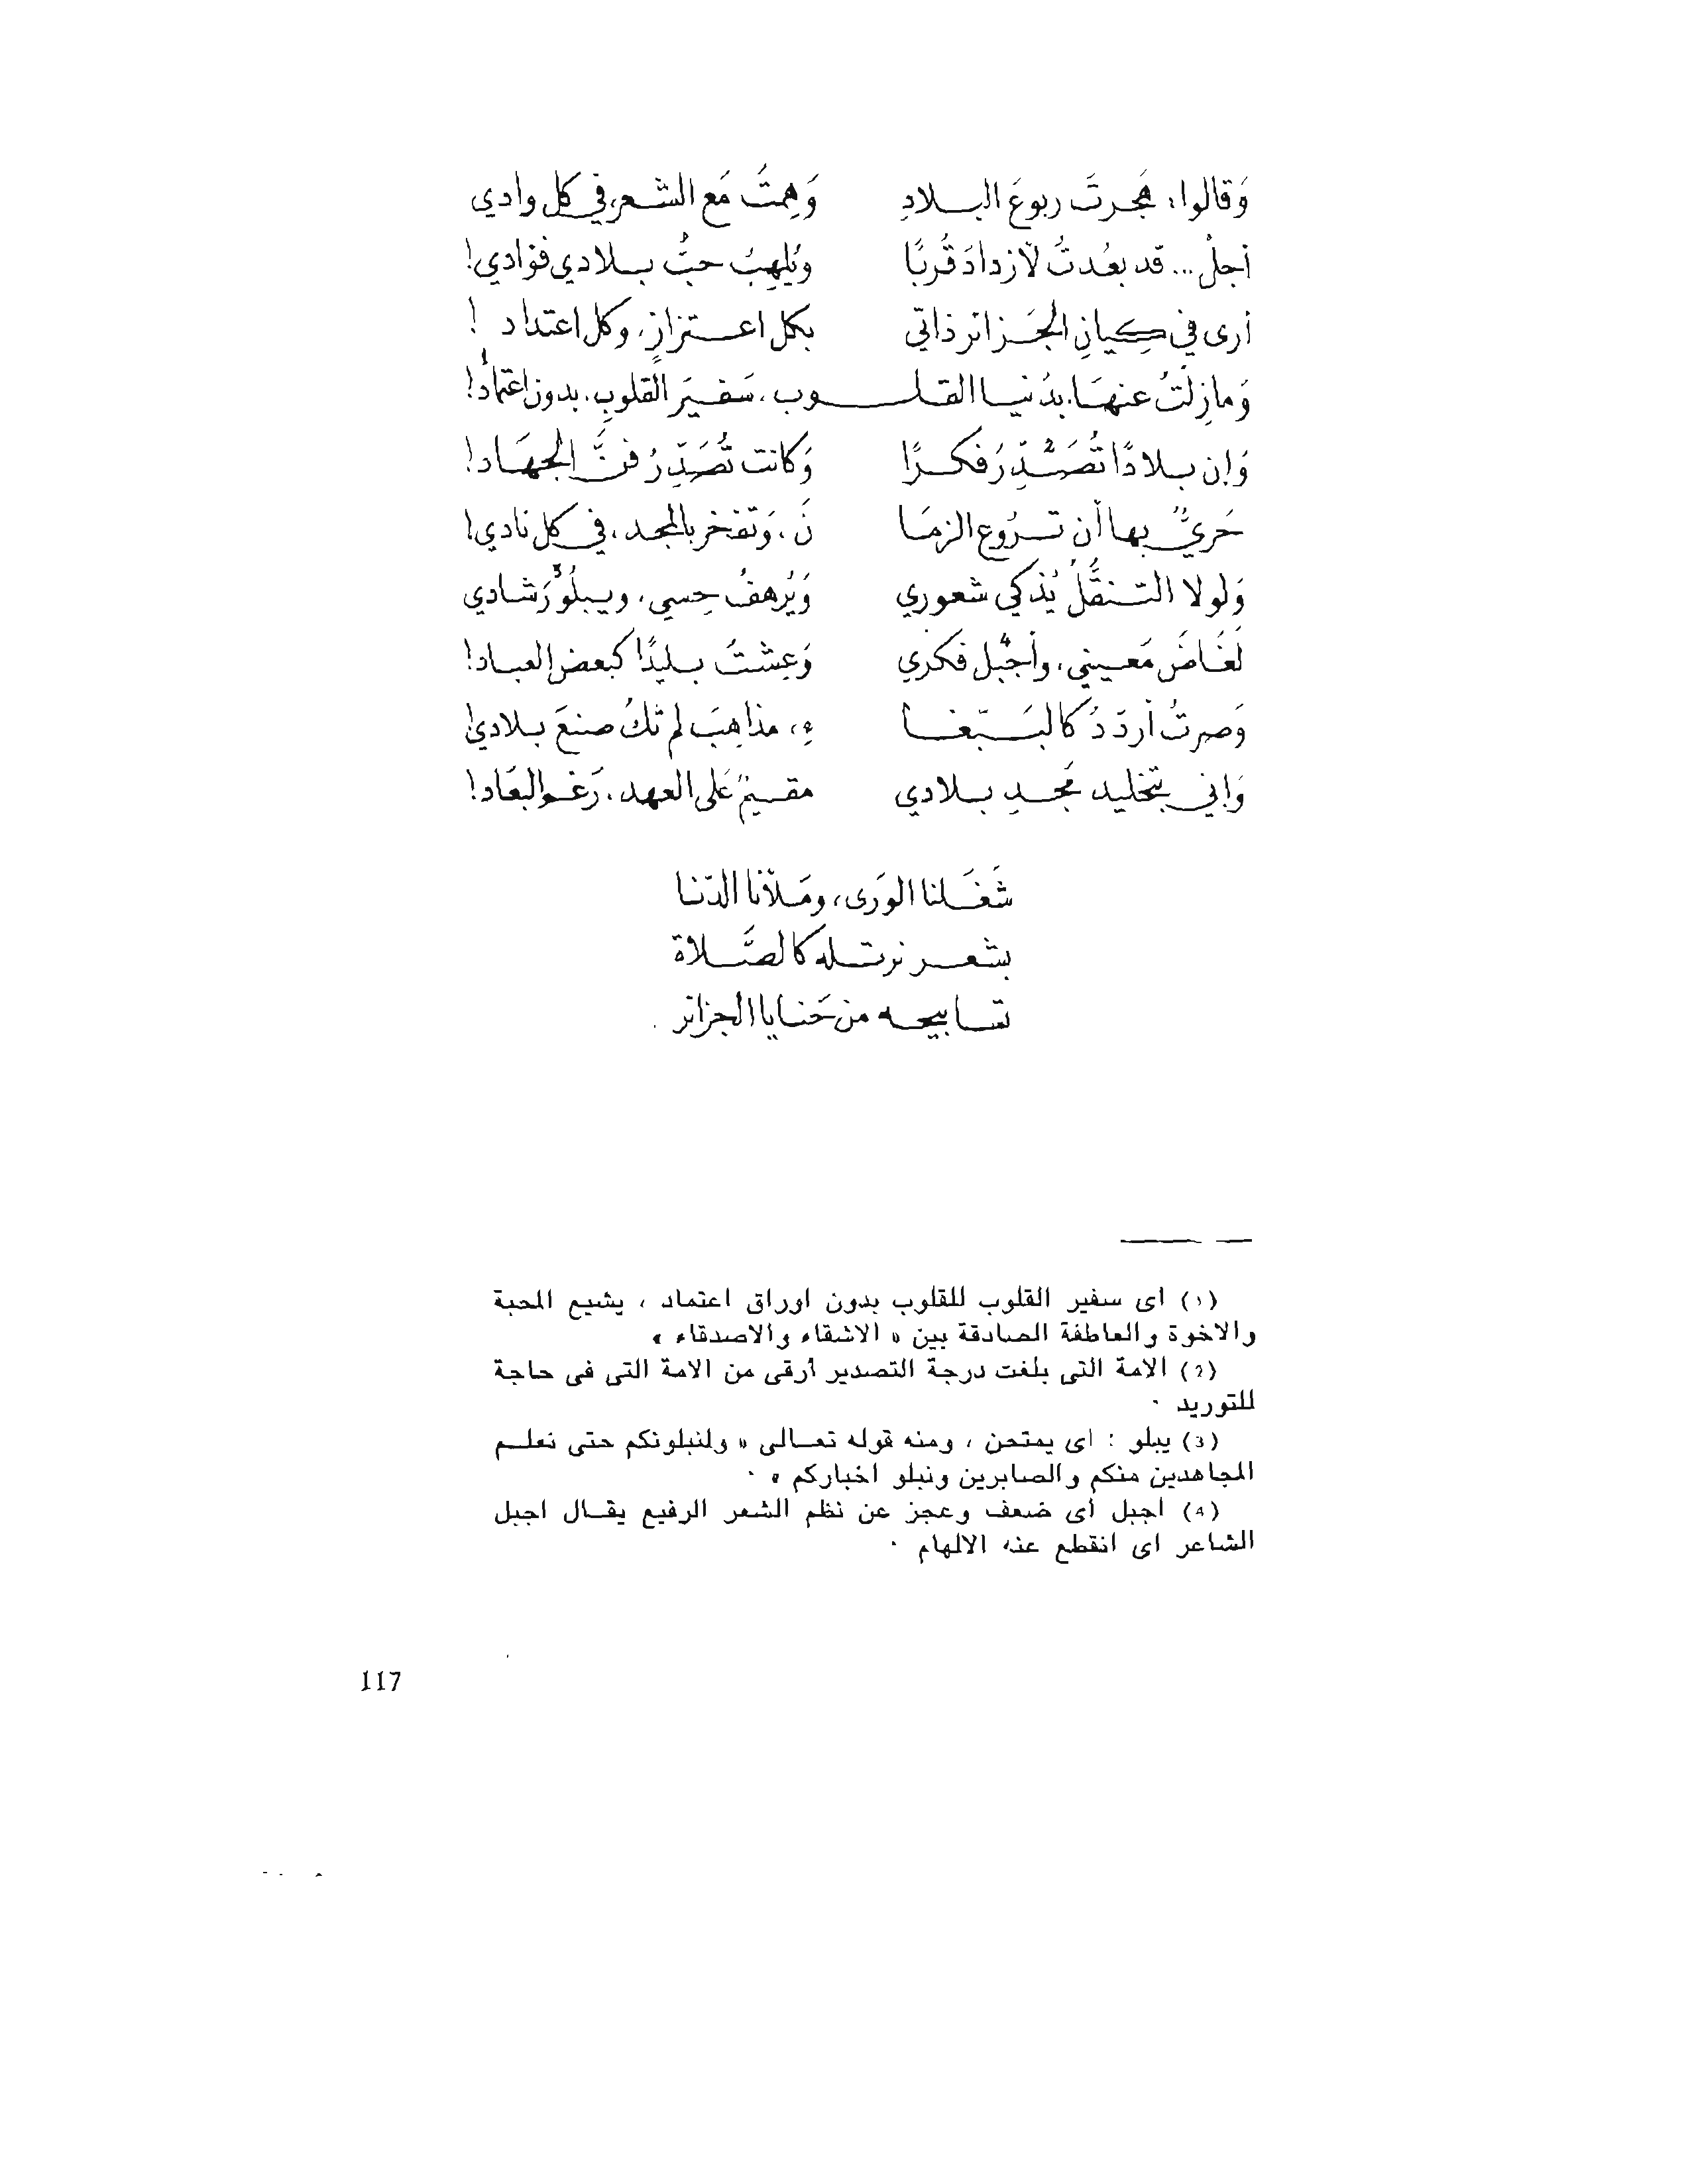 وَقالوا: هَجرتَ ربوعَ البلادِ وَهِمتُ مَع الشعر، في كل وادي
أجلْ... قد بعُدتُ لأزدادَ قُربًا ويُلهِبُ حبُّ بلادي فؤادي!
أرى في كِيانِ الجَزائر ذاتي بكل اعتزازٍ، وكل اعتداد !
وَمازِلتُ عنهَا، بدُنيا القلوب، سَفيَر القلوبِ، بدون اعتماد1!
وَإن بلادًا تُصَدِّرُ2 فكرًا وَكانت تُصَدِّرُ فنَّ الجهَاد!
حَريٌّ بها أن تَرُوع الزمَا نَ، وَتفخر بالمجد، في كل نادي!
وَلولا التنقُّلُ يُذكي شعوري وَيُرهفُ حِسي، ويبلُو3 رَشادي
لَغَاضَ مَعيني، وأجبل4 فكري وَعِشتُ بليدًا كبعض العباد!
وَصرتُ أردّدُ كالبَبّغا ءِ، مذاهِبَ لم تكُ صنعَ بلادي!
وَإني بتخليد مَجدِ بلادي مقيمٌ عَلى العهد، رَغم البعَاد!
شَغَلنا الورَى، ومَلأنا الدّنا
بشعر نرتله كالصَّلاة
تسابيحه من حَنايا الجزائر
(1) اى سفير القلوب للقلوب بدون اوراق اعتماد ، يشيع المحبة
والاخوة والعاطفة الصادقة بين « الاشقاء والاصدقاء »
(2) الامة التى بلغت درجة التصدير أرقى من الامة التى فى حاجة
للتوريد ·
(3) يبلو : اى يمتحن ، ومنه قوله تعالى « ولنبلونكم حتى نعلم
المجاهدين منكم والصابرين ونبلو اخباركم » ·
(4) اجبل أى ضعف وعجز عن نظم الشعر الرفيع يقال اجبل
الشاعر اى انقطع عنه الالهام ·
117